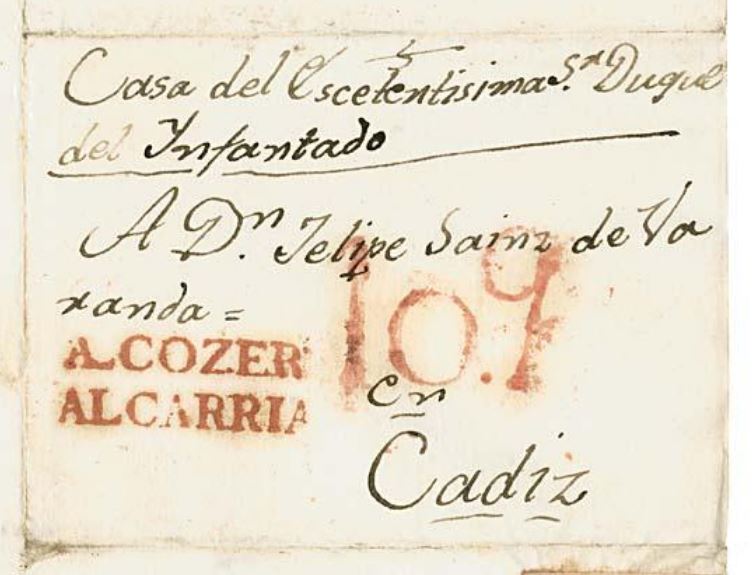 Casa del Escelentisima Sʳ. Duque
del Ynfantado
A Dⁿ. Felipe Sainz de Va
randa =
A.COZER
ALCARRIA
10.9
en
Cadiz